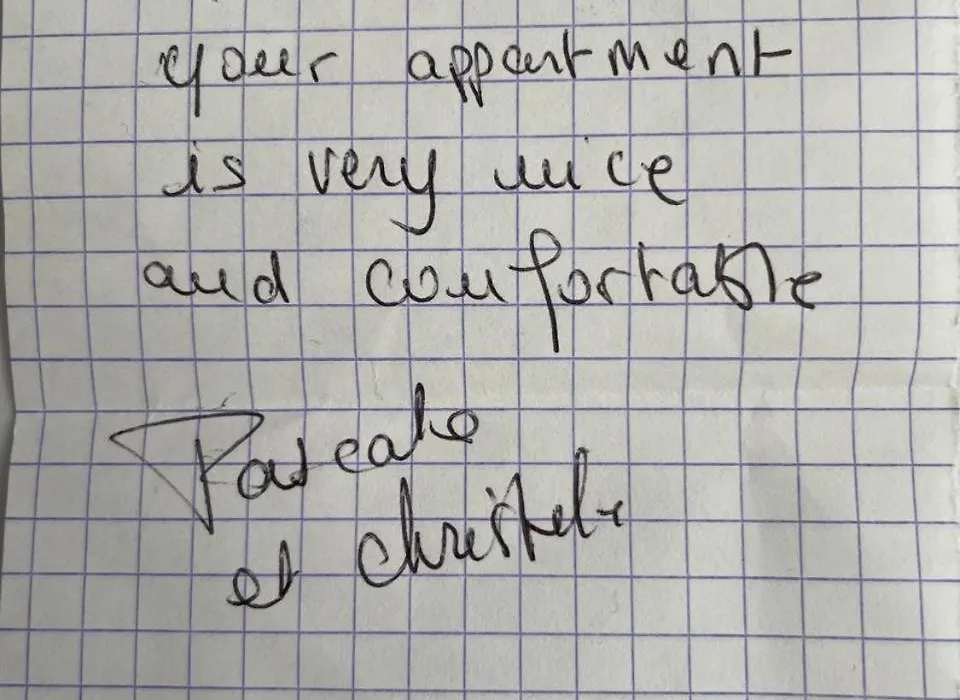 your appartment
is very nice
and comfortable
Pascale
et christele